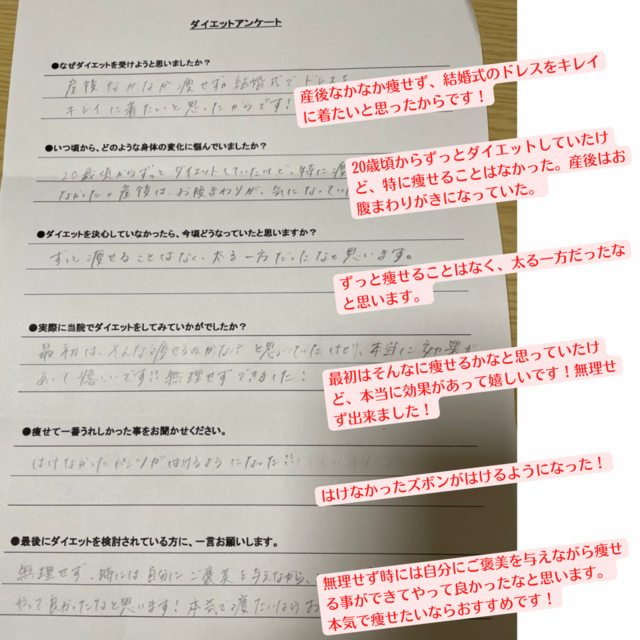 ダイエットアンケート
●なぜダイエットを受けようと思いましたか？
産後なかなか痩せず。結婚式でドレスを
キレイに着たいと思ったからです！
産後なかなか痩せず、結婚式のドレスをキレイ
に着たいと思ったからです！
●いつ頃から、どのような身体の変化に悩んでいましたか？
20歳頃からずっとダイエットしていたけど、特に痩
なかった。産後は、お腹まわりが、気になってい
20歳頃からずっとダイエットしていたけ
ど、特に痩せることはなかった。産後はお
腹まわりがきになっていた。
●ダイエットを決心していなかったら、今頃どうなっていたと思いますか？
ずっと痩せることはなく、太る一方だったなと思います。
ずっと痩せることはなく、太る一方だったな
と思います。
●実際に当院でダイエットをしてみていかがでしたか？
最初は、そんなに痩せるのかな？と思っていたけど、本当に効果が
あって嬉しいです!!無理せずできました！
最初はそんなに痩せるかなと思っていたけ
ど、本当に効果があって嬉しいです！無理せ
ず出来ました！
●痩せて一番うれしかった事をお聞かせください。
はけなかったパンツがはけるようになった!!
はけなかったズボンがはけるようになった！
●最後にダイエットを検討されている方に、一言お願いします。
無理せず、時には自分にご褒美を与えながら、
やって良かったなと思います！本気で痩たいなら お
無理せず時には自分にご褒美を与えながら痩せ
る事ができてやって良かったなと思います。
本気で痩せたいならおすすめです！